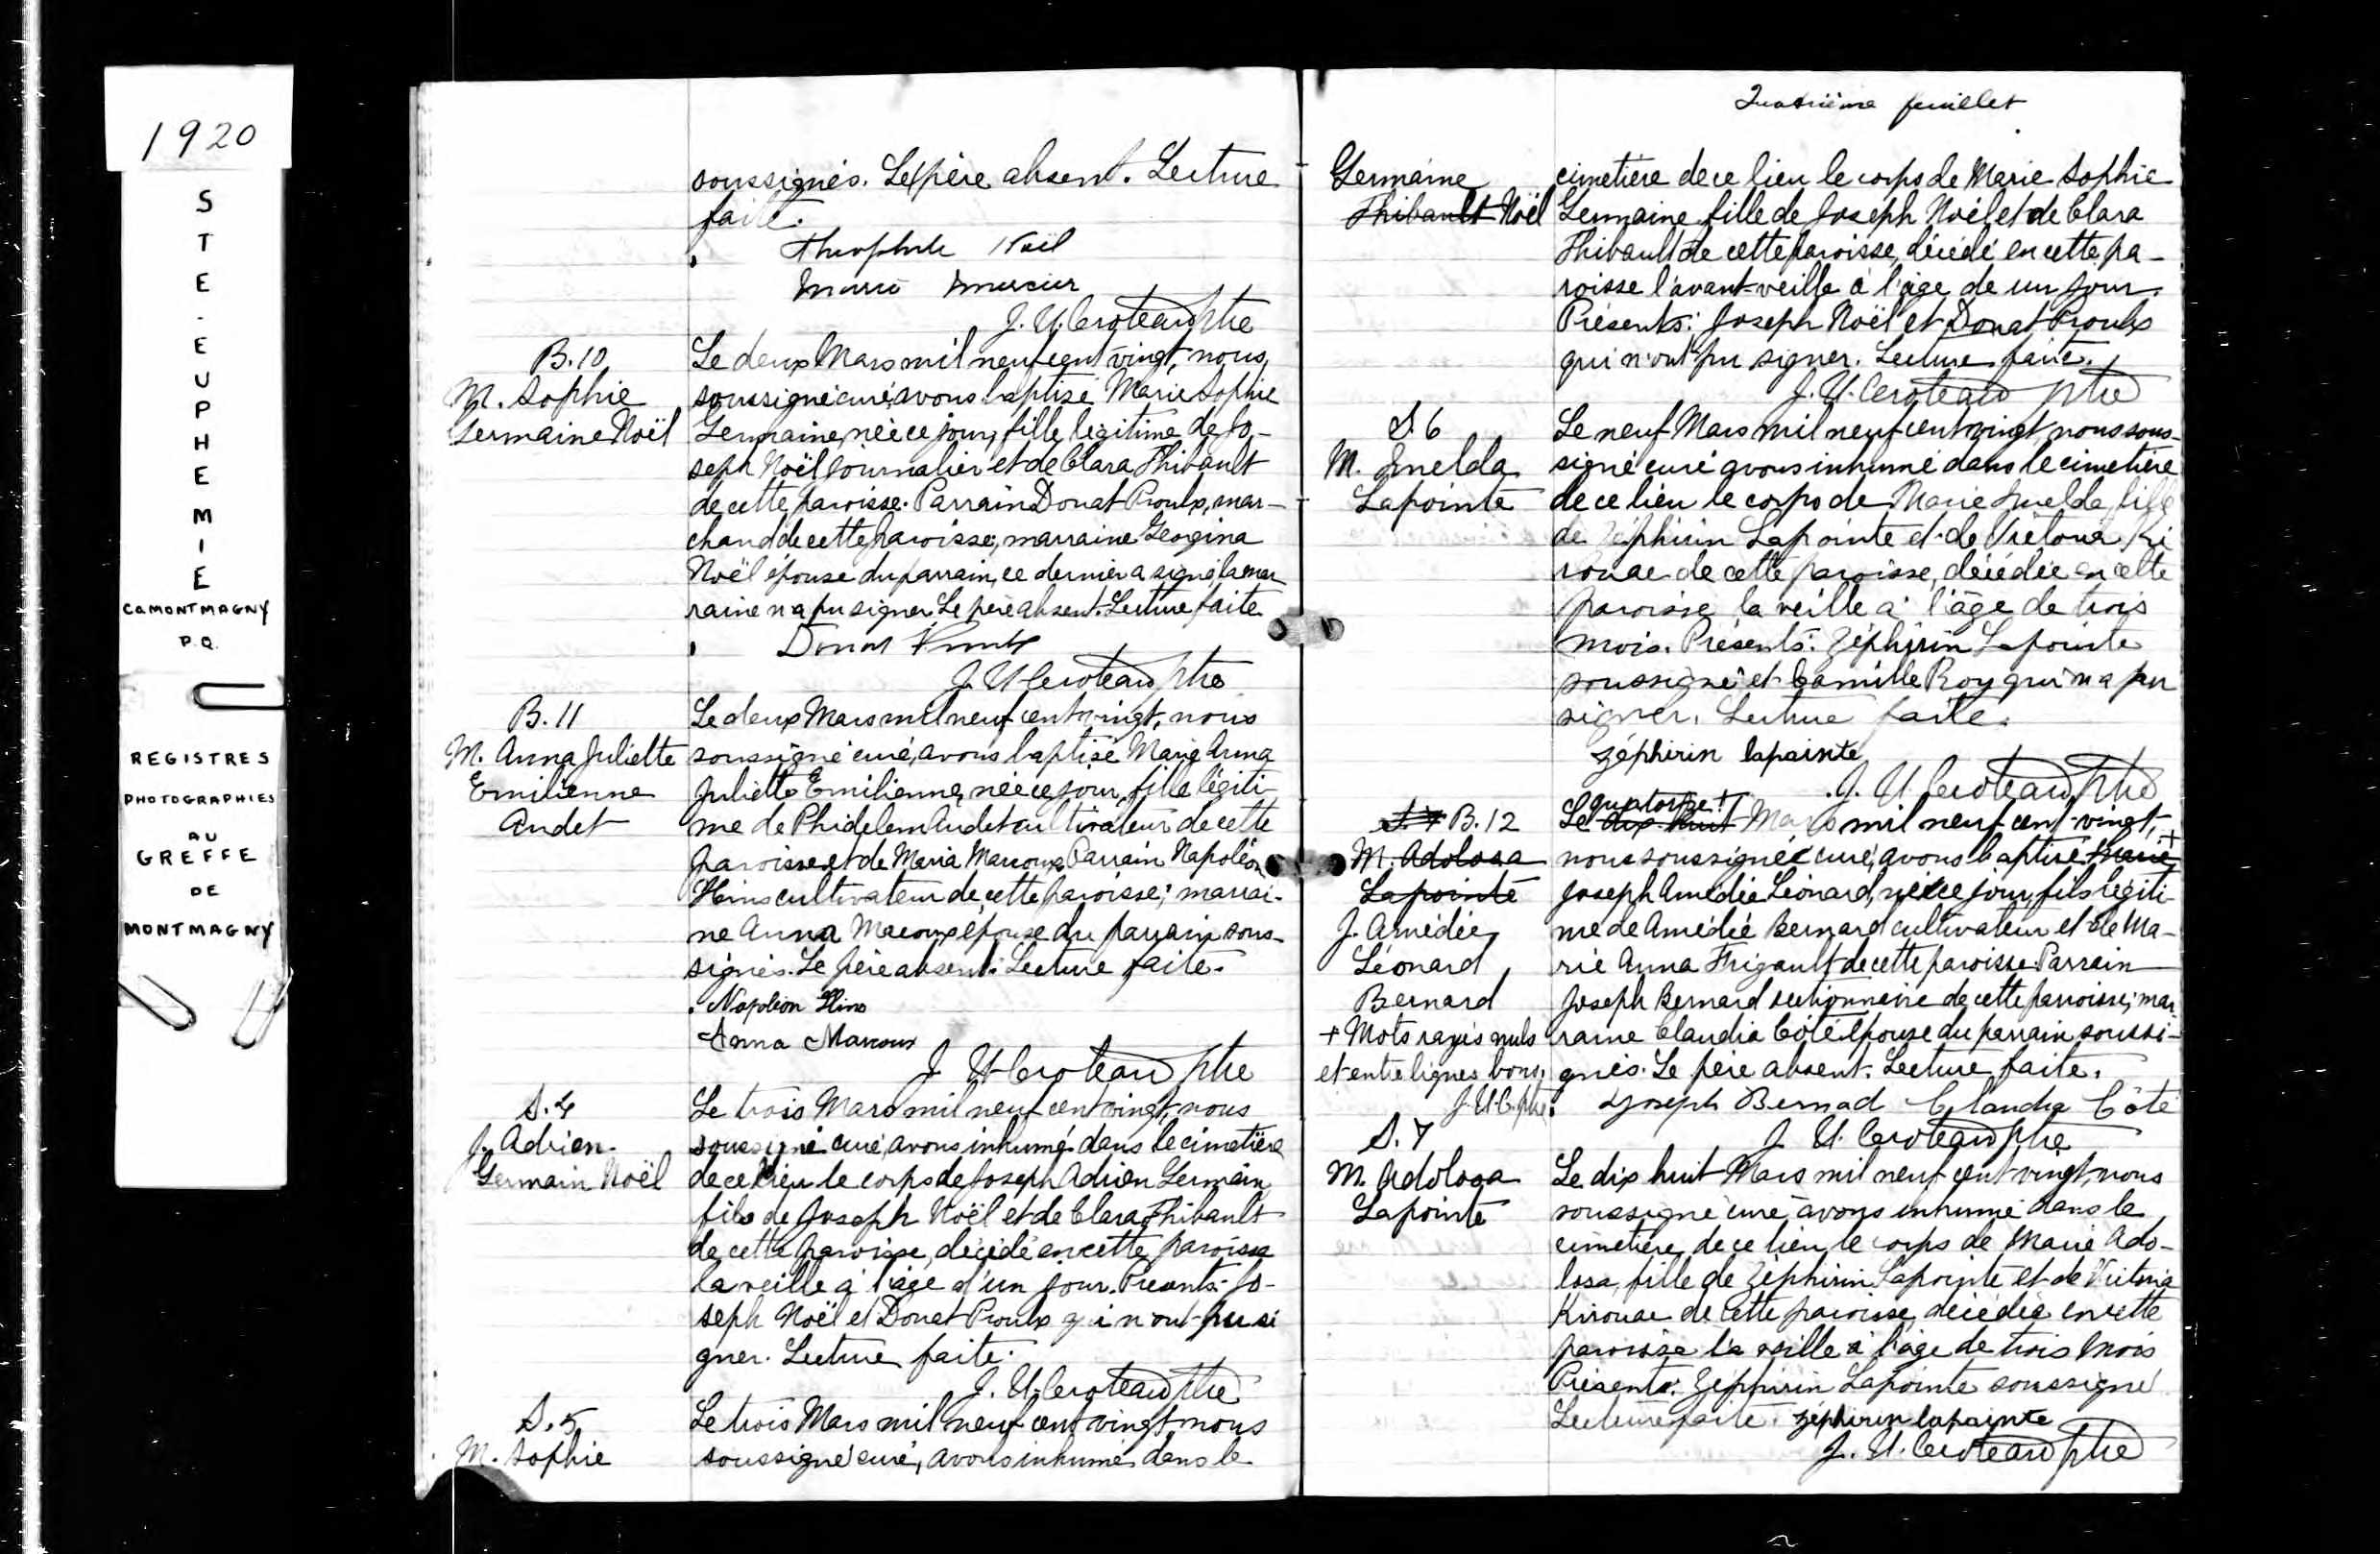 1920
STE. EUPHEMIE
Co MONTMAGNY
P.Q.
REGISTRES
PHOTOGRAPHIES
AU
GREFFE
DE
MONTMAGNY
soussignés. Le père absent. Lecture
faite.
Theophile Noël
Mercier
J. U. Croteau Ptre
B. 10
M. Sophie
Germaine Noël
Le deux Mars mil neuf cent vingt, nous,
soussigné curé, avons baptisé Marie Sophie
Germaine, née ce jour, fille légitime de Jo-
seph Noël journalier et de Clara Thibault
de cette paroisse. Parrain Donat Proulx, mar-
chand de cette paroisse, marraine Georgina
Noël épouse du parrain, ce dernier a signé, la mar
raine n'a pu signer. Le père absent. Lecture faite
Donat Proulx
J. U. Croteau Ptre
B. 11
M. Anna Juliette
Emilienne
Audet
Le deux Mars mil neuf cent vingt, nous
soussigné curé, avons baptisé Marie Anna
Juliette Emilienne, née ce jour, fille légiti-
me de Phidelem Audet cultivateur de cette
paroisse et de Maria Marcoux. Parrain Napoléon
Hins cultivateur de cette paroisse; marrai-
ne Anna Marcoux épouse du parrain sous-
signés. Le père absent. Lecture faite.
Napoléon Hins
Anna Marcoux
J. U. Croteau Ptre
S. 4
J. Adrien
Germain Noël
Le trois Mars mil neuf cent vingt, nous
soussigné curé, avons inhumé dans le cimetière
de ce lieu le corps de Joseph Adrien Germain
fils de Joseph Noël et de Clara Thibault
de cette paroisse, décédé en cette paroisse
la veille à l'âge d'un jour. Présents: Jo-
seph Noël et Donat Proulx qui n'ont pu si
gner. Lecture faite.
J. U. Croteau Ptre
S. 5
M. Sophie
Le trois Mars mil neuf cent vingt nous
soussigné curé, avons inhumé dans le
Quatrième feuillet
Germaine
Thibault Noël
cimetière de ce lieu le corps de Marie Sophie
Germaine fille de Joseph Noël et de Clara
Thibault de cette paroisse, décédé en cette pa-
roisse l'avant-veille à l'âge de un jour.
Présents: Joseph Noël et Donat Proulx
qui n'ont pu signer. Lecture faite.
J. U. Croteau Ptre
S. 6
M. Imelda
Lapointe
Le neuf Mars mil neuf cent vingt, nous sous-
signé curé avons inhumé dans le cimetière
de ce lieu le corps de Marie Imelda fille
de Zéphirin Lapointe et de Victoria Ki
rouac de cette paroisse, décédée en cette
paroisse la veille à l'âge de trois
mois. Présents: Zéphirin Lapointe
soussigné et Camille Roy qui n'a pu
signer. Lecture faite.
Zéphirin lapointe
J. U. Croteau Ptre
S. 7 B. 12
M. Adolosa
Lapointe
J. Amédée
Léonard
Bernard
+ Mots rayés nuls
et entre lignes bons.
J. U. C. ptre
quatorze +
Le dix huit Mars mil neuf cent vingt,
nous soussigné curé, avons baptisé Marie +
Joseph Amédée Léonard, né ce jour, fils légiti-
me de Amédée Bernard cultivateur et de Ma-
rie Anna Frigault de cette paroisse. Parrain
Joseph Bernard sectionnaire de cette paroisse; mar
raine Claudia Côté épouse du parrain soussi-
gnés. Le père absent. Lecture faite.
Joseph Bernad Claudia Côté
J. U. Croteau Ptre
S. 7
M. Adolosa
Lapointe
Le dix huit Mars mil neuf cent vingt, nous
soussigné curé avons inhumé dans le
cimetière de ce lieu, le corps de Marie Ado-
losa, fille de Zéphirin Lapointe et de Victoria
Kirouac de cette paroisse, décédée en cette
paroisse la veille à l'âge de trois mois
Présents: Zéphirin Lapointe soussigné
Lecture faite. Zéphirin lapointe
J. U. Croteau Ptre